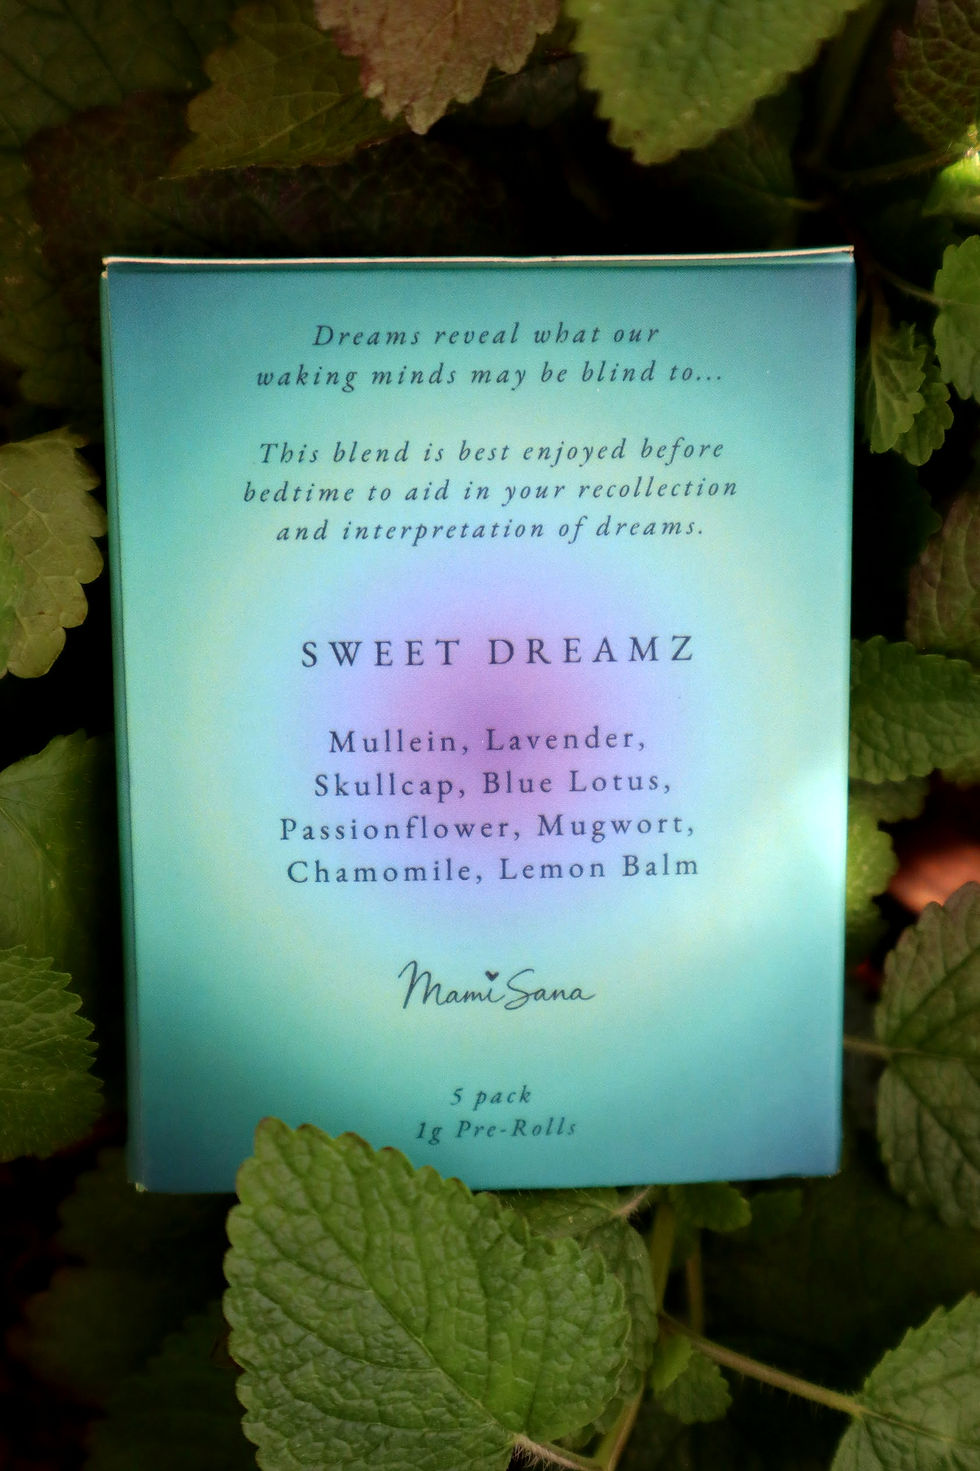 Dreams reveal what our
waking minds may be blind to...
This blend is best enjoyed before
bedtime to aid in your recollection
and interpretation of dreams.
SWEET DREAMZ
Mullein, Lavender,
Skullcap, Blue Lotus,
Passionflower, Mugwort,
Chamomile, Lemon Balm
Mami Sana
5 pack
1g Pre-Rolls